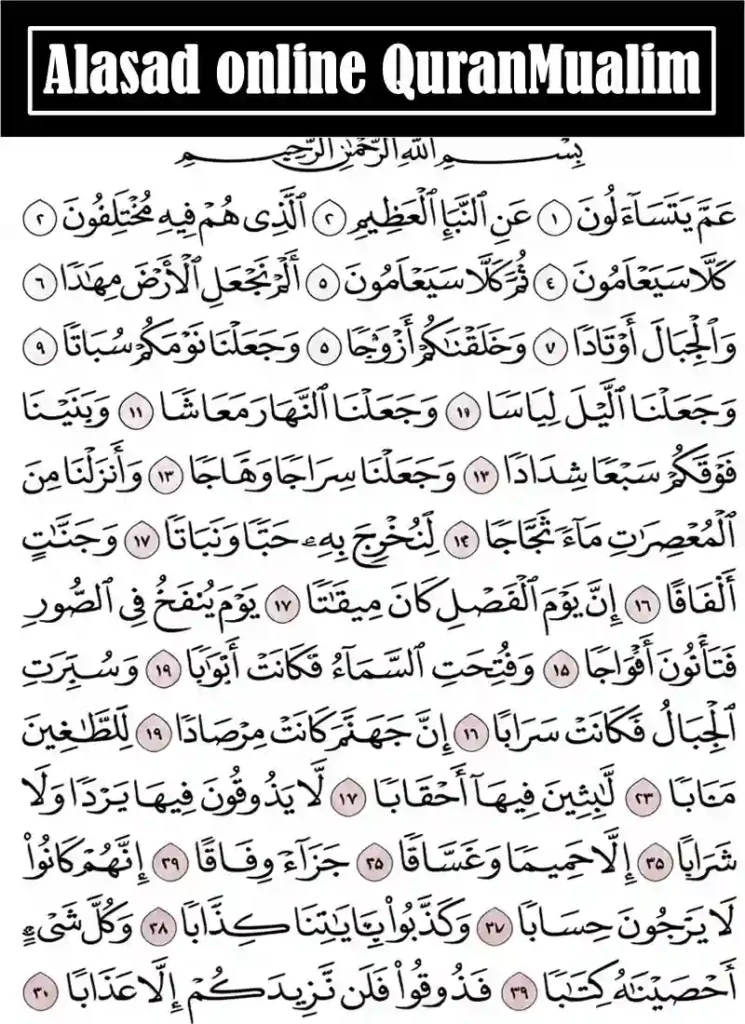 Alasad online QuranMualim
بِسْمِ اللَّهِ الرَّحْمَٰنِ الرَّحِيمِ
عَمَّ يَتَسَآءَلُونَ ١ عَنِ النَّبَإِ الْعَظِيمِ ٢ الَّذِى هُمْ فِيهِ مُخْتَلِفُونَ ٢
كَلَّا سَيَعَامُونَ ٤ ثُمَّ كَلَّا سَيَعَامُونَ ٥ أَلَمْ نَجْعَلِ الْأَرْضَ مِهَٰدًا ٦
وَالْجِبَالَ أَوْتَادًا ٧ وَخَلَقْنَٰكُمْ أَزْوَٰجًا ٥ وَجَعَلْنَا نَوْمَكُمْ سُبَاتًا ٩
وَجَعَلْنَا الَّيْلَ لِيَاسًا ١٠ وَجَعَلْنَا النَّهَارَ مَعَاشًا ١١ وَبَنَيْنَا
فَوْقَكُمْ سَبْعًا شِدَادًا ١٢ وَجَعَلْنَا سِرَاجًا وَهَّاجًا ١٣ وَأَنزَلْنَا مِنَ
الْمُعْصِرَٰتِ مَآءً ثَجَّاجًا ١٤ لِّنُخْرِجَ بِهِۦ حَبًّا وَنَبَاتًا ١٧ وَجَنَّٰتٍ
أَلْفَافًا ١٦ إِنَّ يَوْمَ الْفَصْلِ كَانَ مِيقَٰتًا ١٧ يَوْمَ يُنفَخُ فِى الصُّورِ
فَتَأْتُونَ أَفْوَاجًا ١٥ وَفُتِحَتِ السَّمَآءُ فَكَانَتْ أَبْوَٰبًا ١٩ وَسُيِّرَتِ
الْجِبَالُ فَكَانَتْ سَرَابًا ١٦ إِنَّ جَهَنَّمَ كَانَتْ مِرْصَادًا ١٩ لِلطَّٰغِينَ
مَـَٔابًا ٢٣ لَّٰبِثِينَ فِيهَآ أَحْقَابًا ١٧ لَّا يَذُوقُونَ فِيهَا بَرْدًا وَلَا
شَرَابًا ٣٥ إِلَّا حَمِيمًا وَغَسَّاقًا ٢٥ جَزَآءً وِفَاقًا ٢٩ إِنَّهُمْ كَانُوا۟
لَا يَرْجُونَ حِسَابًا ٢٧ وَكَذَّبُوا۟ بِـَٔايَٰتِنَا كِذَّابًا ٢٨ وَكُلَّ شَىْءٍ
أَحْصَيْنَٰهُ كِتَٰبًا ٣٩ فَذُوقُوا۟ فَلَن نَّزِيدَكُمْ إِلَّا عَذَابًا ٣٠